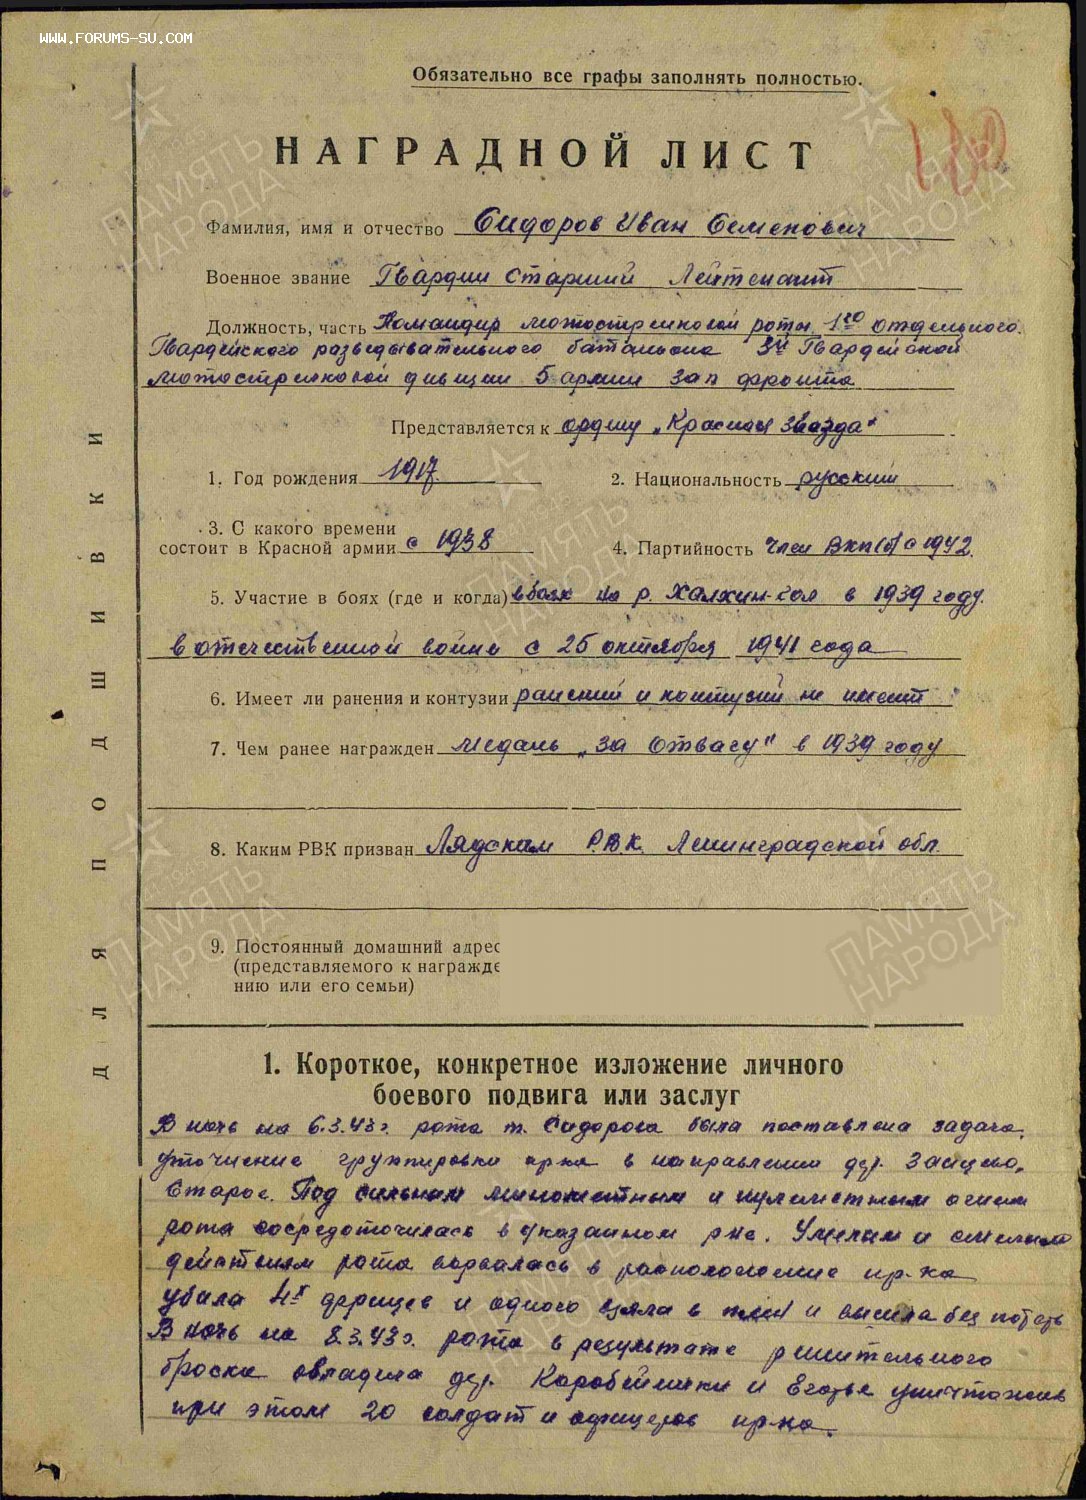 WWW.FORUMS-SU.COM
Обязательно все графы заполнять полностью.
НАГРАДНОЙ ЛИСТ
Фамилия, имя и отчество Сидоров Иван Семенович
Военное звание Гвардии Старший Лейтенант
Должность, часть Командир мотострелковой роты 1го отдельного
Гвардейского разведывательного батальона 3й Гвардейской
мотострелковой дивизии 5 армии Зап фронта
Представляется к ордену „Красная Звезда"
1. Год рождения 1917.
2. Национальность русский
3. С какого времени
состоит в Красной армии с 1938
4. Партийность Член ВКП(б) с 1942.
5. Участие в боях (где и когда) в боях на р. Халхин-Гол в 1939 году.
в отечественной войне с 25 октября 1941 года
6. Имеет ли ранения и контузии ранений и контузий не имеет
7. Чем ранее награжден медаль „За Отвагу" в 1939 году
8. Каким РВК призван Лядским Р.В.К. Ленинградской обл.
9. Постоянный домашний адрес
(представляемого к награжде
нию или его семьи)
ДЛЯ ПОДШИВКИ
1. Короткое, конкретное изложение личного
боевого подвига или заслуг
В ночь на 6.3.43г. рота т. Сидорова была поставлена задача.
уточнение группировки пр-ка в направлении дер. Зайцево,
Старое. Под сильным минометным и пулеметным огнем
рота сосредоточилась в указанном р-не. Умелым и смелым
действием рота ворвалась в расположение пр-ка
убила 4х фрицев и одного взяла в плен и вышла без потерь
В ночь на 8.3.43г. рота в результате решительного
броска овладела дер. Коробейники и Егорье уничтожив
при этом 20 солдат и офицеров пр-ка.
ПАМЯТЬ НАРОДА
ПАМЯТЬ НАРОДА
ПАМЯТЬ НАРОДА
ПАМЯТЬ НАРОДА
ПАМЯТЬ НАРОДА